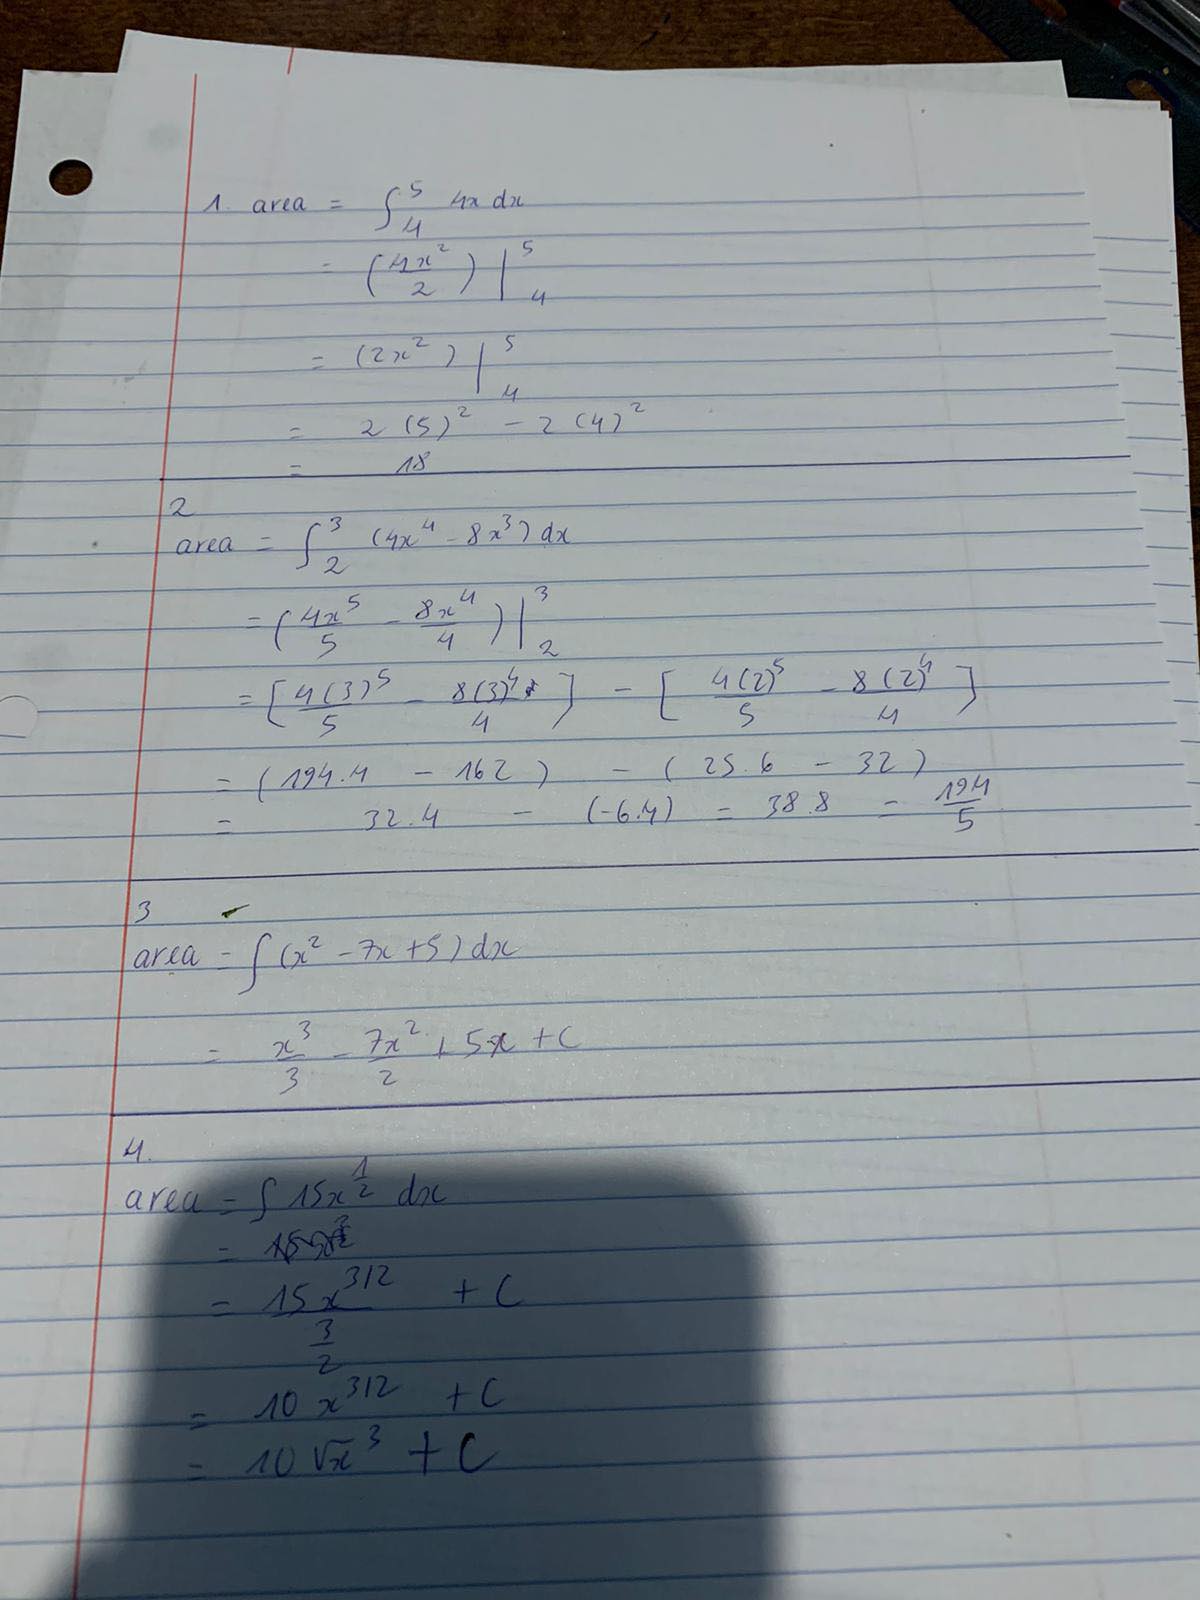 1. area = ∫₄⁵ 4x dx
= (4x²/2) |₄⁵
= (2x²) |₄⁵
= 2 (5)² - 2 (4)²
= 18
2
area = ∫₂³ (4x⁴ - 8x³) dx
= (4x⁵/5 - 8x⁴/4) |₂³
= [4(3)⁵/5 - 8(3)⁴/4] - [4(2)⁵/5 - 8(2)⁴/4]
= (194.4 - 162) - (25.6 - 32)
= 32.4 - (-6.4) = 38.8 = 194/5
3
area = ∫ (x² - 7x + 5) dx
= x³/3 - 7x²/2 + 5x + C
4.
area = ∫ 15x^(1/2) dx
=
= 15x^(3/2) / (3/2) + C
= 10 x^(3/2) + C
= 10 √x³ + C